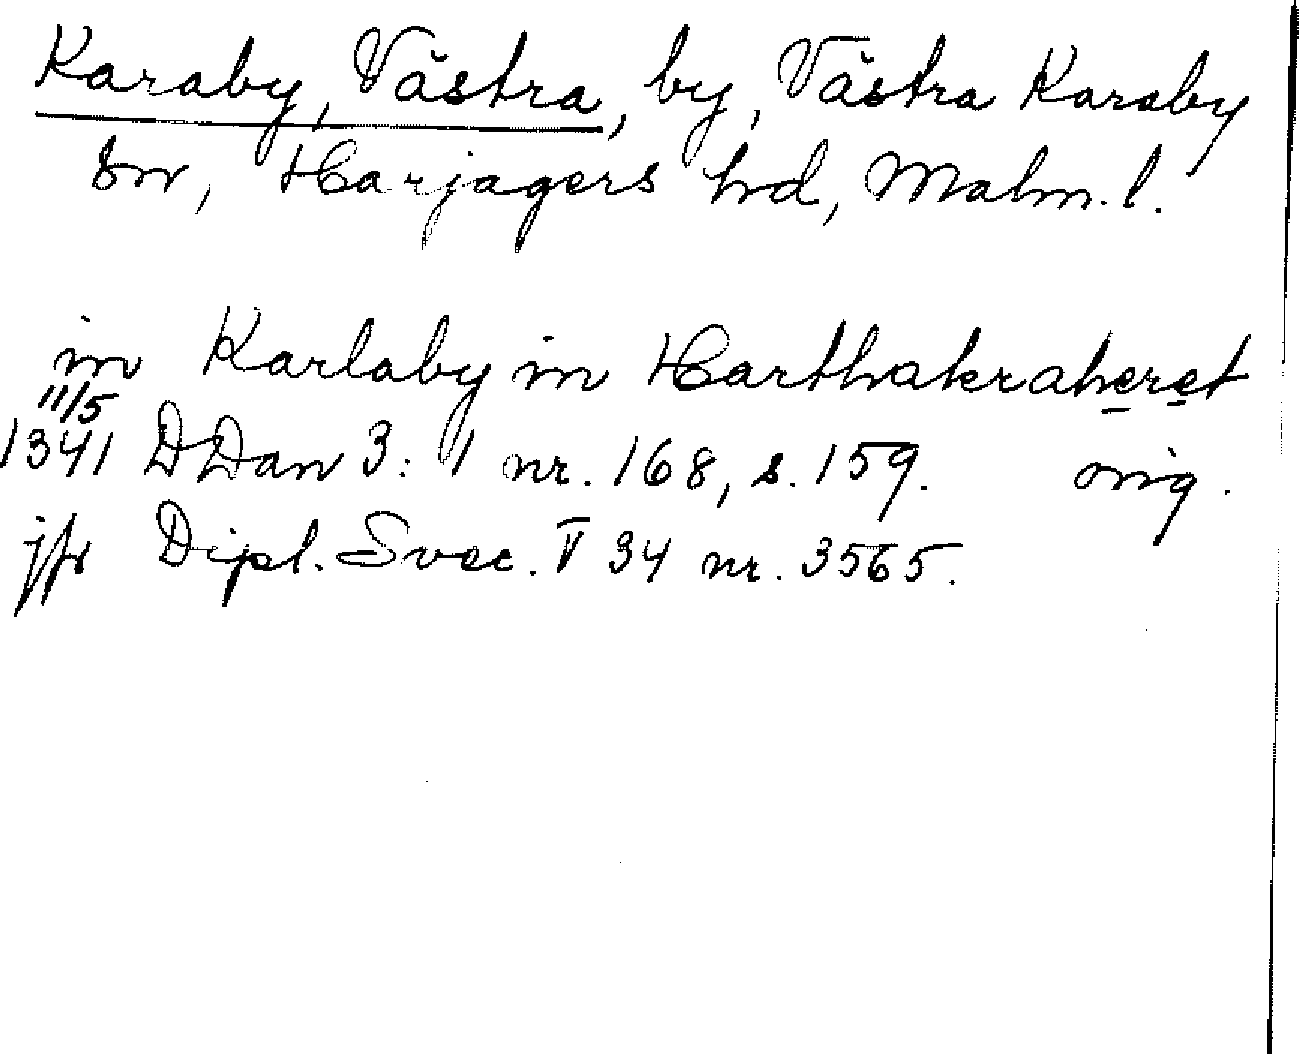 Karaby, Västra, by, Västra Karaby
sn, Harjagers hd, Malm. l.
in Karlaby in Harthakraheret
11/5
1341 DDan 3: 1 nr. 168, s. 159. orig.
jfr Dipl. Svec. V 34 nr. 3565.